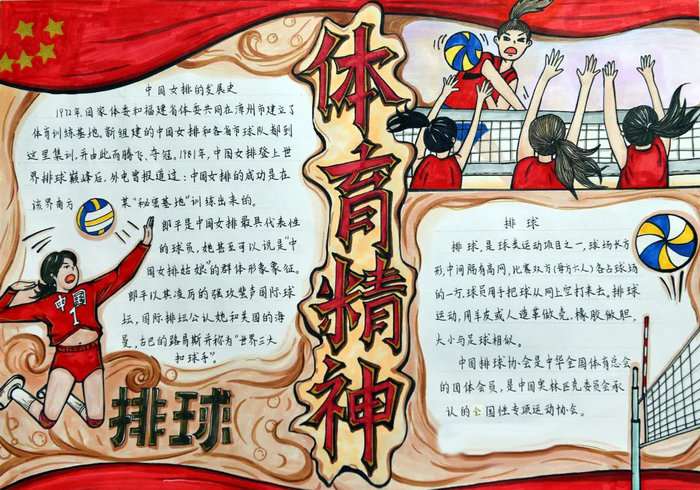 中国女排的发展史
1972年,国家体委和福建省体委共同在漳州市建立了
体育训练基地,新组建的中国女排和各省市球队都到
这里集训,并由此而腾飞、夺冠。1981年,中国女排登上世
界排球巅峰后,外电曾报道过:中国女排的成功是在
该界南方 某"秘密基地"训练出来的。
郎平是中国女排最具代表性
的球员,她甚至可以说是"中
国女排姑娘"的群体形象象征。
郎平以其凌厉的强攻声国际球
坛,国际排坛公认她和美国的海
曼,古巴的路易斯并称为"世界三大
扣球手"。
中国
1
排球
体育精神
排球
排球,是球类运动项目之一,球场长方
形,中间隔有高网,比赛双方(每方六人)各占球场
的一方,球员用手把球从网上空打来打去。排球
运动,用羊皮或人造革做壳,橡胶做胆,
大小与足球相似。
中国排球协会是中华全国体育总会
的团体会员,是中国奥林匹克委员会承
认的全国性专项运动协会。